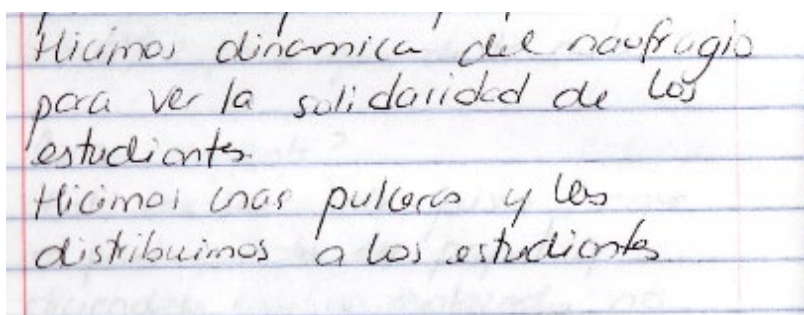 Hicimos dinamica del naufragio
para ver la solidaridad de los
estudiantes.
Hicimos unas pulceras y les
distribuimos a los estudiantes